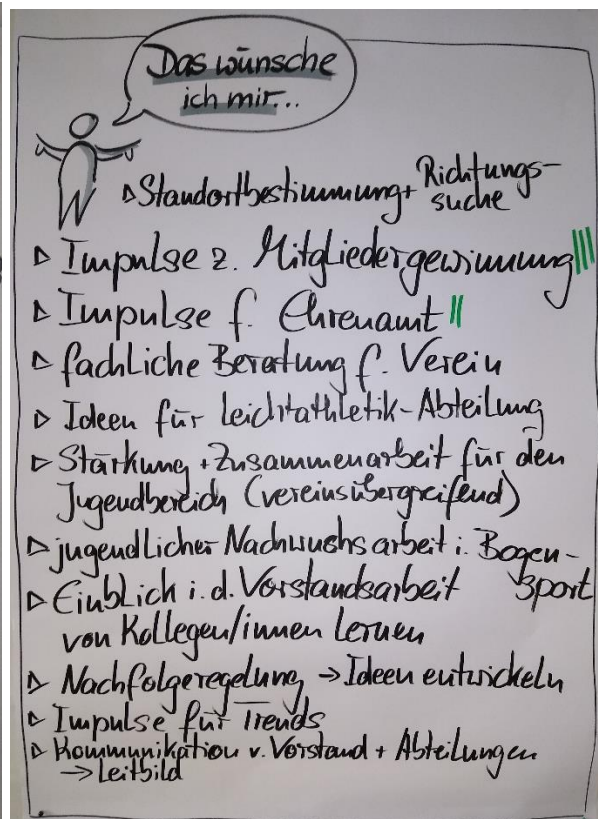 Das wünsche
ich mir...
▷ Standortbestimmung + Richtungs-
suche
▷ Impulse z. Mitgliedergewinnung |||
▷ Impulse f. Ehrenamt ||
▷ fachliche Beratung f. Verein
▷ Ideen für Leichtathletik-Abteilung
▷ Stärkung + Zusammenarbeit für den
Jugendbereich (vereinsübergreifend)
▷ jugendlicher Nachwuchsarbeit i. Bogen-
sport
▷ Einblick i. d. Vorstandsarbeit
von Kollegen/innen lernen
▷ Nachfolgeregelung → Ideen entwickeln
▷ Impulse für Trends
▷ Kommunikation v. Vorstand + Abteilungen
→ Leitbild